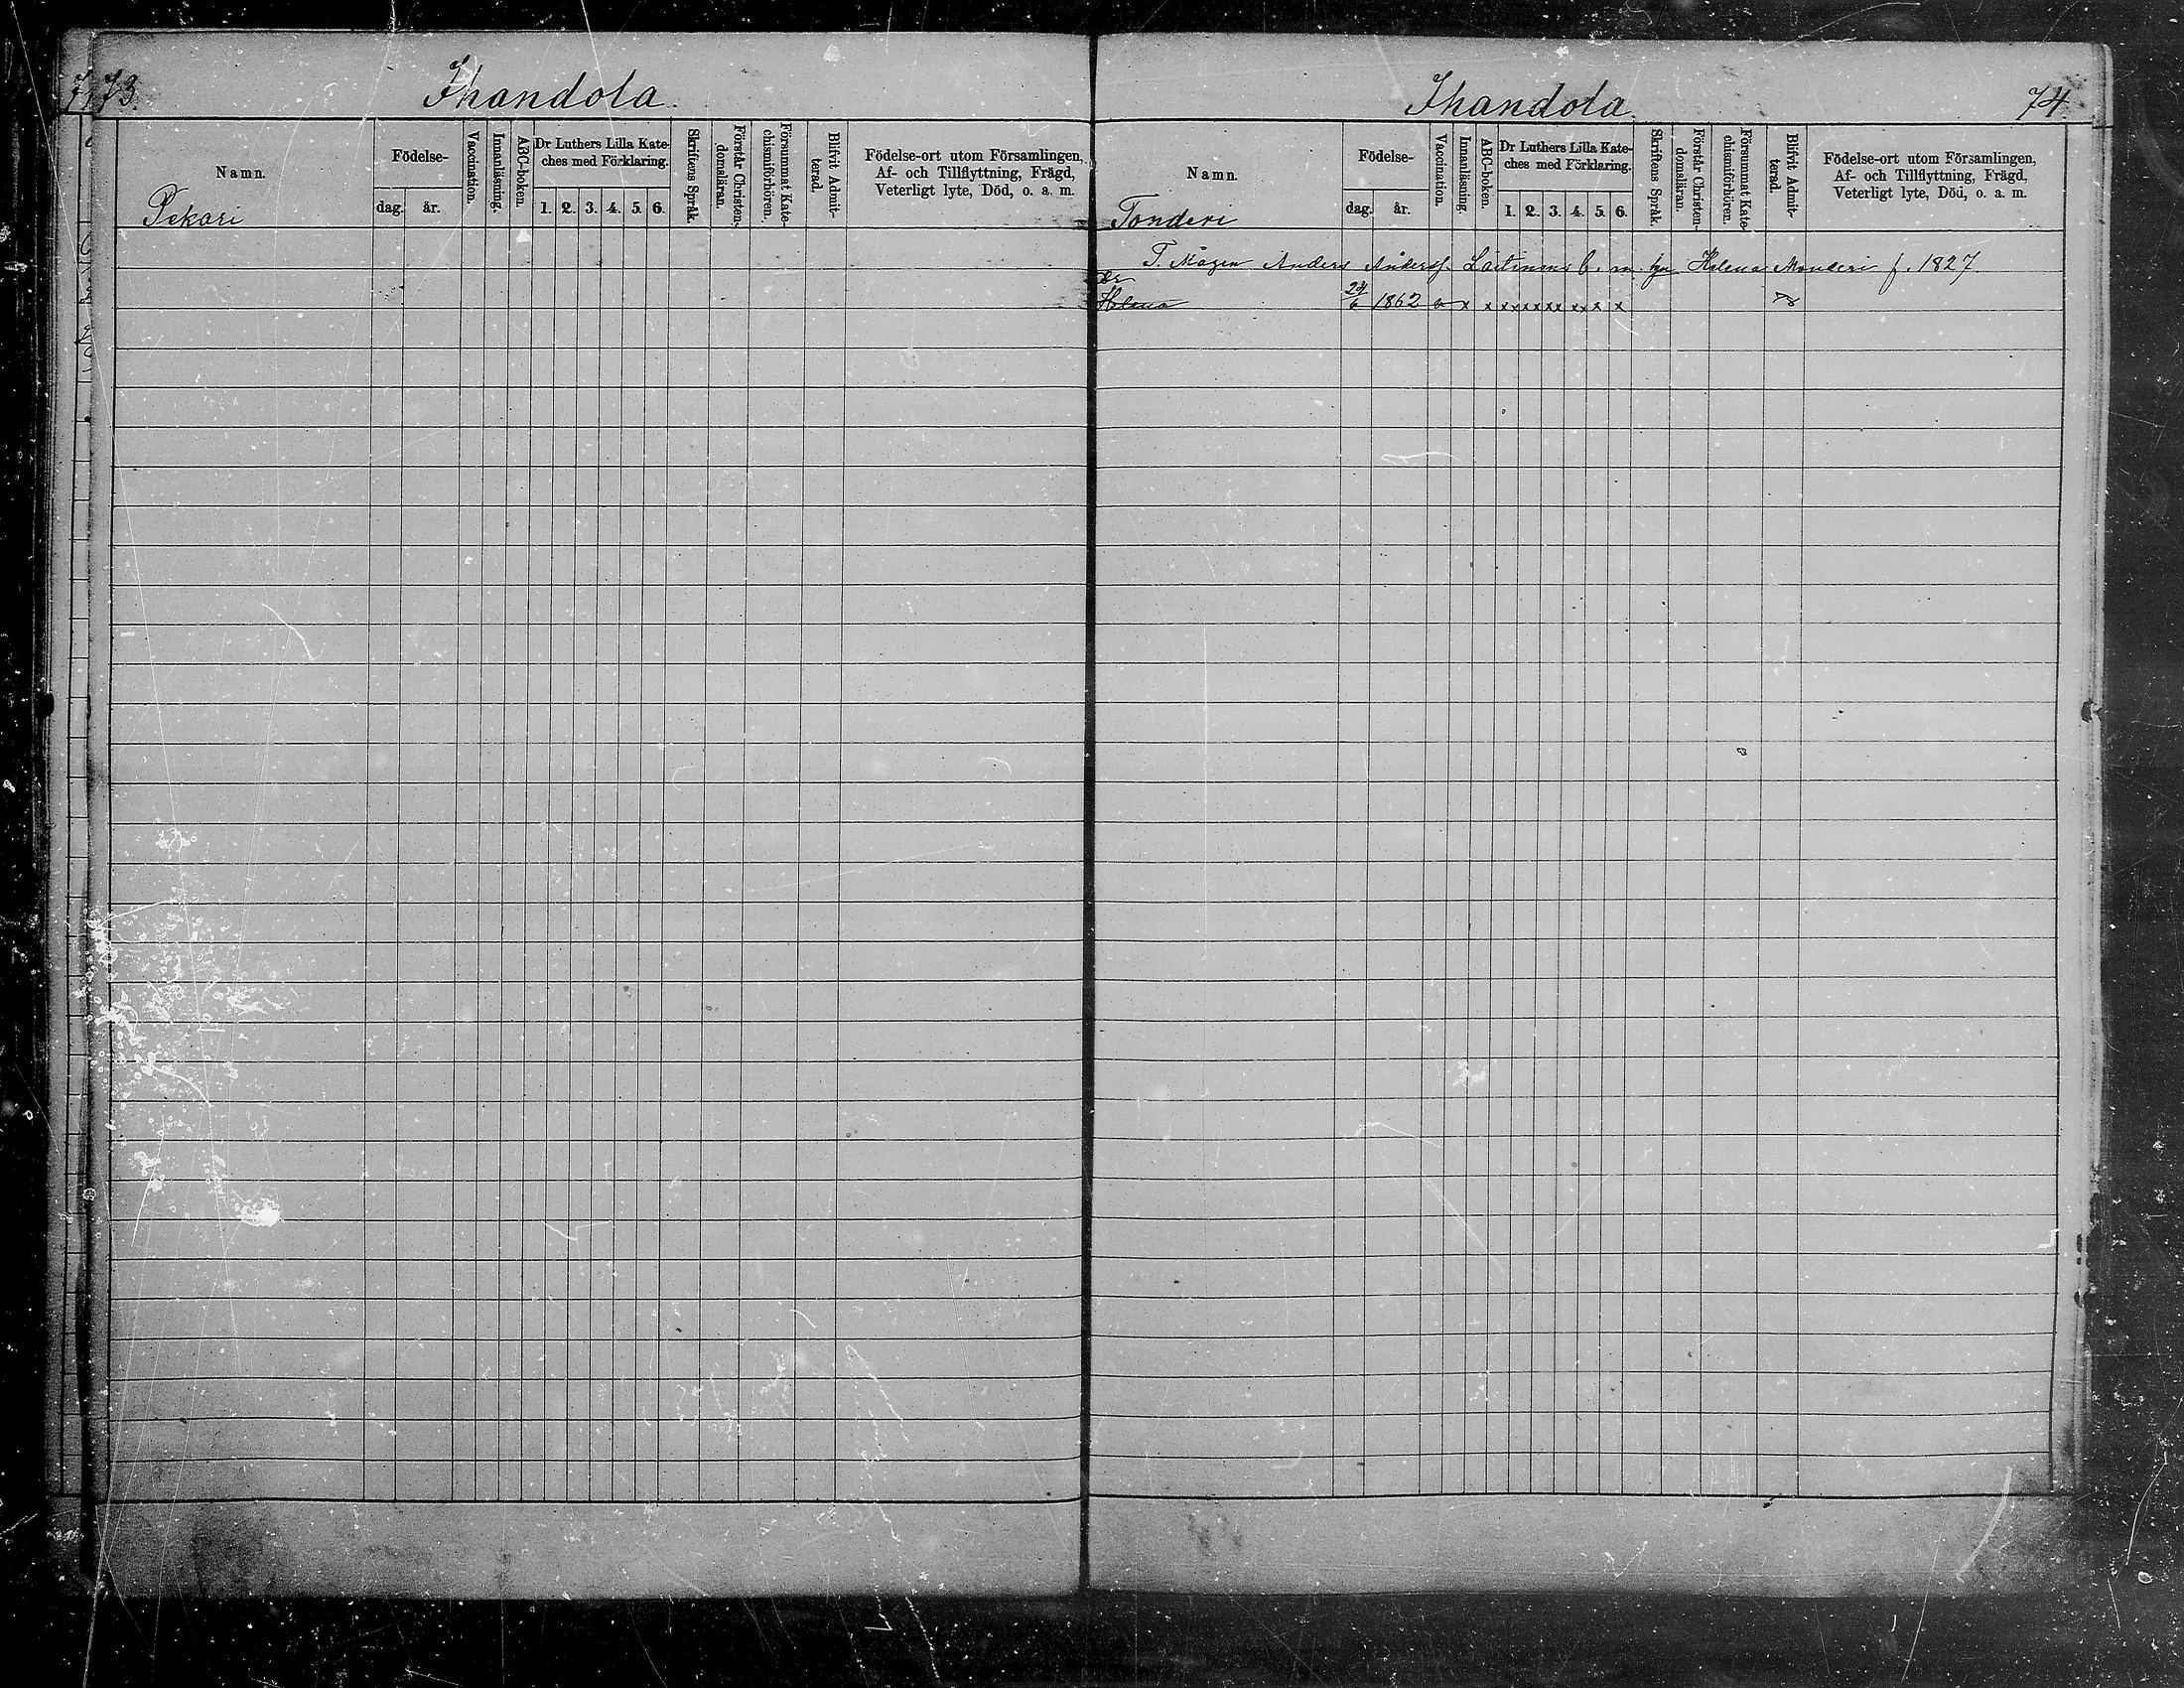 73.
Ihandola.
Namn.
Födelse-
dag.
år.
Vaccination.
Innanläsning.
ABC-boken.
Dr Luthers Lilla Kate-
ches med Förklaring.
1. 2. 3. 4. 5. 6.
Skriftens Språk.
Förstår Christen-
domsläran.
Försummat Kate-
chismiförhören.
Blifvit Admit-
terad.
Födelse-ort utom Församlingen,
Af- och Tillflyttning, Frägd,
Veterligt lyte, Död, o. a. m.
Pekari
Ihandola.
74.
Namn.
Födelse-
dag.
år.
Vaccination.
Innanläsning.
ABC-boken.
Dr Luthers Lilla Kate-
ches med Förklaring.
1. 2. 3. 4. 5. 6.
Skriftens Språk.
Förstår Christen-
domsläran.
Försummat Kate-
chismiförhören.
Blifvit Admit-
terad.
Födelse-ort utom Församlingen,
Af- och Tillflyttning, Frägd,
Veterligt lyte, Död, o. a. m.
Tonderi
T. Mågen Anders Anderss. Laitinens m. Helena Monderi f. 1827.
Dr
Helena 24/6 1862 x x xx xx xx xx x x